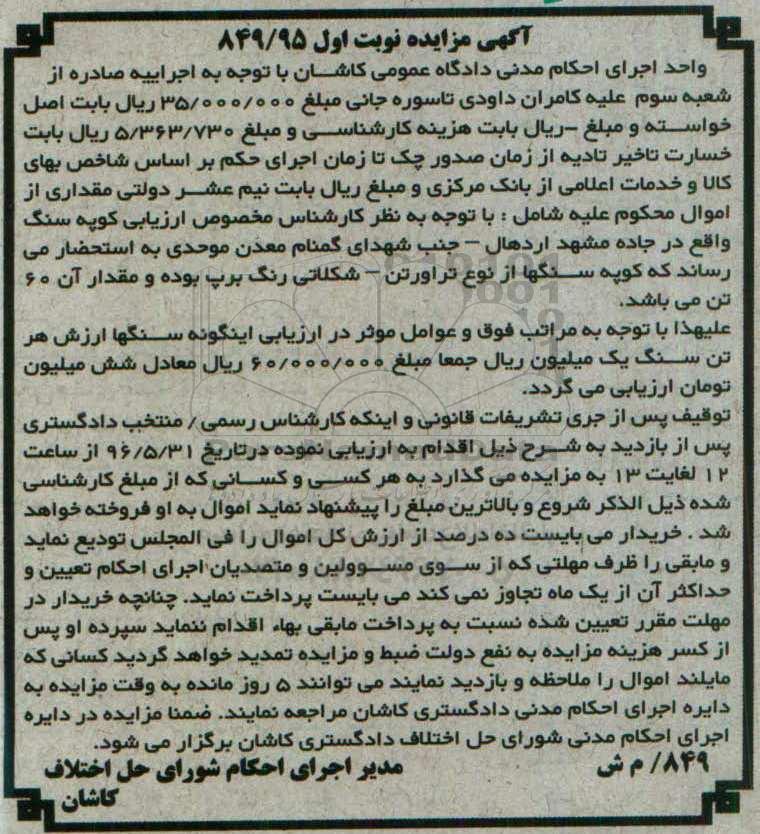 آگهی مزایده نوبت اول ۸۴۹/۹۵
واحد اجرای احکام مدنی دادگاه عمومی کاشان با توجه به اجراییه صادره از
شعبه سوم علیه کامران داودی تاسوره جانی مبلغ ۳۵/۰۰۰/۰۰۰ ریال بابت اصل
خواسته و مبلغ -ریال بابت هزینه کارشناسی و مبلغ ۵/۳۶۳/۷۳۰ ریال بابت
خسارت تاخیر تادیه از زمان صدور چک تا زمان اجرای حکم بر اساس شاخص بهای
کالا و خدمات اعلامی از بانک مرکزی و مبلغ ریال بابت نیم عشر دولتی مقداری از
اموال محکوم علیه شامل : با توجه به نظر کارشناس مخصوص ارزیابی کوپه سنگ
واقع در جاده مشهد اردهال – جنب شهدای گمنام معدن موحدی به استحضار می
رساند که کوپه سنگها از نوع تراورتن – شکلاتی رنگ برپ بوده و مقدار آن ۶۰
تن می باشد.
علیهذا با توجه به مراتب فوق و عوامل موثر در ارزیابی اینگونه سنگها ارزش هر
تن سنگ یک میلیون ریال جمعا مبلغ ۶۰/۰۰۰/۰۰۰ ریال معادل شش میلیون
تومان ارزیابی می گردد.
توقیف پس از جری تشریفات قانونی و اینکه کارشناس رسمی/ منتخب دادگستری
پس از بازدید به شرح ذیل اقدام به ارزیابی نموده درتاریخ ۹۶/۵/۳۱ از ساعت
۱۲ لغایت ۱۳ به مزایده می گذارد به هر کسی و کسانی که از مبلغ کارشناسی
شده ذیل الذکر شروع و بالاترین مبلغ را پیشنهاد نماید اموال به او فروخته خواهد
شد . خریدار می بایست ده درصد از ارزش کل اموال را فی المجلس تودیع نماید
و مابقی را ظرف مهلتی که از سوی مسوولین و متصدیان اجرای احکام تعیین و
حداکثر آن از یک ماه تجاوز نمی کند می بایست پرداخت نماید. چنانچه خریدار در
مهلت مقرر تعیین شده نسبت به پرداخت مابقی بهاء اقدام ننماید سپرده او پس
از کسر هزینه مزایده به نفع دولت ضبط و مزایده تمدید خواهد گردید کسانی که
مایلند اموال را ملاحظه و بازدید نمایند می توانند ۵ روز مانده به وقت مزایده به
دایره اجرای احکام مدنی دادگستری کاشان مراجعه نمایند. ضمنا مزایده در دایره
اجرای احکام مدنی شورای حل اختلاف دادگستری کاشان برگزار می شود.
۸۴۹/ م ش
مدیر اجرای احکام شورای حل اختلاف
کاشان